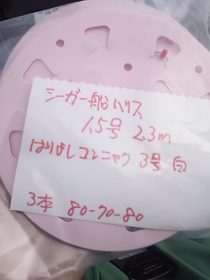 シーガー船ハリス
1.5号 2.3m
はりよしコンニャク 3号 白
3本 80-70-80